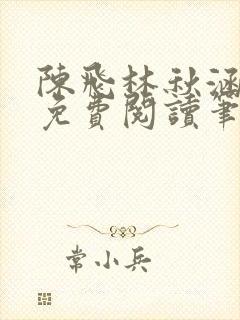 陳飛林秋涵
免費閱讀筆
常小兵